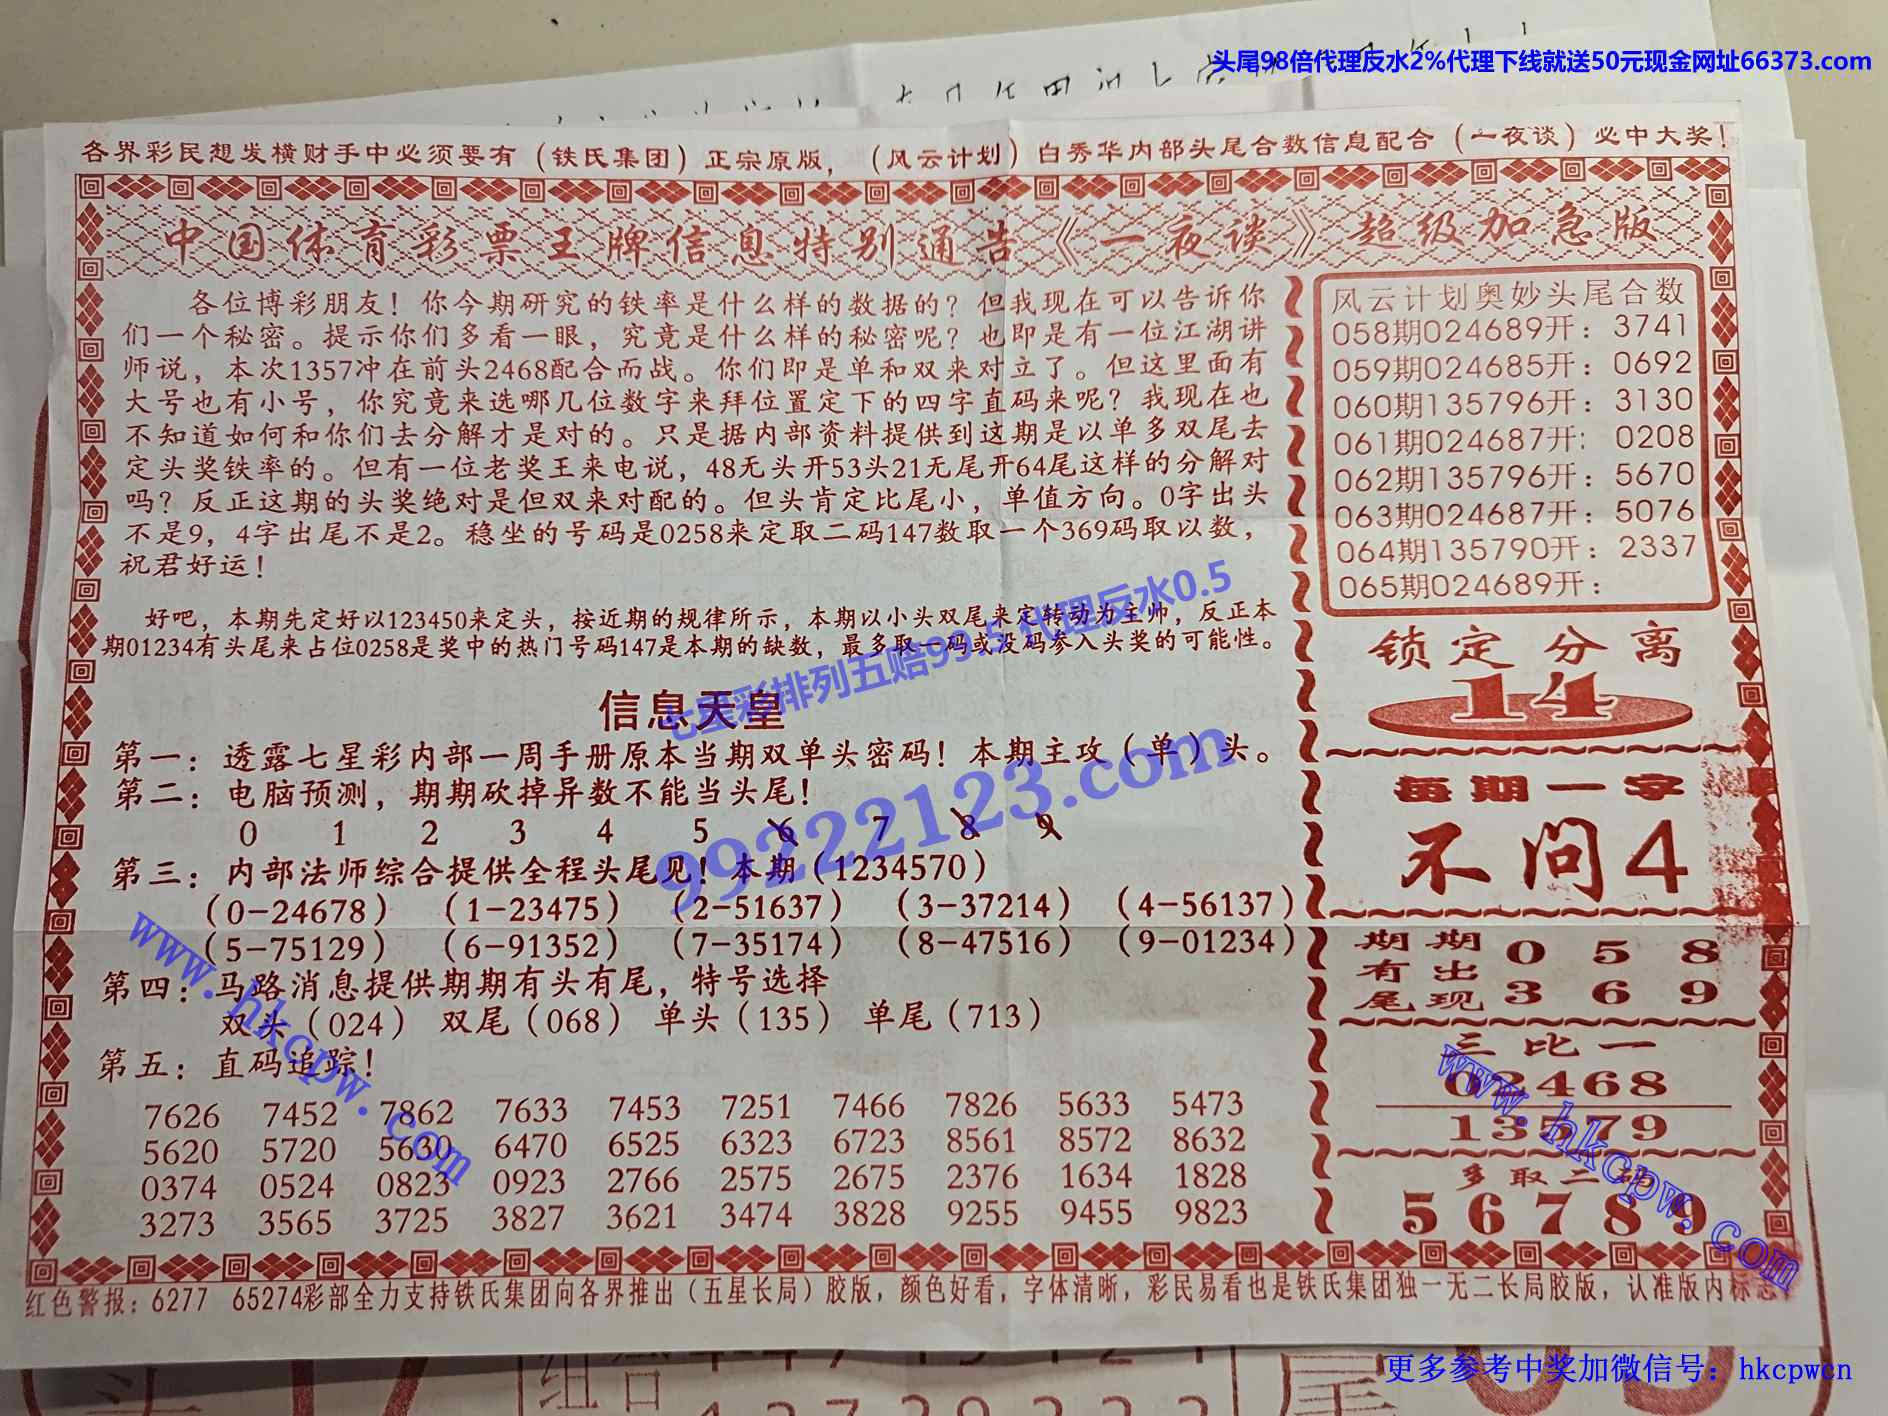 头尾98倍代理反水2%代理下线就送50元现金网址66373.com
各界彩民想发横财手中必须要有（铁氏集团）正宗原版，（风云计划）白秀华内部头尾合数信息配合（一夜谈）必中大奖！
中国体育彩票王牌信息特别通告《一夜谈》超级加急版
各位博彩朋友！你今期研究的铁率是什么样的数据的？但我现在可以告诉你
们一个秘密。提示你们多看一眼，究竟是什么样的秘密呢？也即是有一位江湖讲
师说，本次1357冲在前头2468配合而战。你们即是单和双来对立了。但这里面有
大号也有小号，你究竟来选哪几位数字来拜位置定下的四字直码来呢？我现在也
不知道如何和你们去分解才是对的。只是据内部资料提供到这期是以单多双尾去
定头奖铁率的。但有一位老奖王来电说，48无头开53头21无尾开64尾这样的分解对
吗？反正这期的头奖绝对是但双来对配的。但头肯定比尾小，单值方向。0字出头
不是9，4字出尾不是2。稳坐的号码是0258来定取二码147数取一个369码取以数，
祝君好运！
好吧，本期先定好以123450来定头，按近期的规律所示，本期以小头双尾来定转动为主帅，反正本
期01234有头尾来占位0258是奖中的热门号码147是本期的缺数，最多取一码或没码参入头奖的可能性。
七星彩排列五赔99.5 代理反水0.5
99222123.com
信息天皇
第一：透露七星彩内部一周手册原本当期双单头密码！本期主攻（单）头。
第二：电脑预测，期期砍掉异数不能当头尾！
0 1 2 3 4 5 6 7 8 9
第三：内部法师综合提供全程头尾见！本期（1234570）
（0-24678）（1-23475）（2-51637）（3-37214）（4-56137）
（5-75129）（6-91352）（7-35174）（8-47516）（9-01234）
第四：马路消息提供期期有头有尾，特号选择
双头（024） 双尾（068） 单头（135） 单尾（713）
第五：直码追踪！
7626 7452 7862 7633 7453 7251 7466 7826 5633 5473
5620 5720 5630 6470 6525 6323 6723 8561 8572 8632
0374 0524 0823 0923 2766 2575 2675 2376 1634 1828
3273 3565 3725 3827 3621 3474 3828 9255 9455 9823
www.hkcpw.com
风云计划奥妙头尾合数
058期024689开：3741
059期024685开：0692
060期135796开：3130
061期024687开：0208
062期135796开：5670
063期024687开：5076
064期135790开：2337
065期024689开：
锁定分离
14
每期一字
不问4
期期 0 5 8
有出
尾现 3 6 9
三比一
02468
13579
多取二码
56789
www.hkcpw.com
红色警报：6277 65274彩部全力支持铁氏集团向各界推出（五星长局）胶版，颜色好看，字体清晰，彩民易看也是铁氏集团独一无二长局胶版，认准版内标志
更多参考中奖加微信号：hkcpwcn